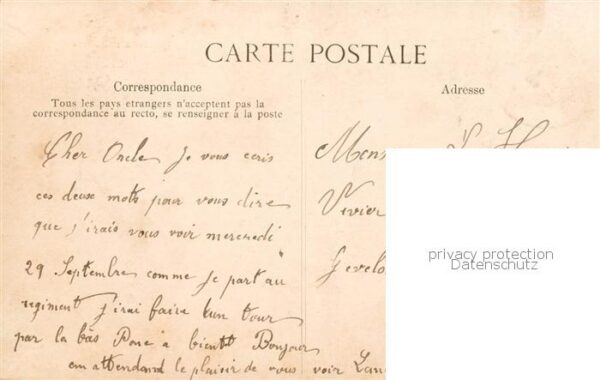 CARTE POSTALE
Correspondance
Tous les pays etrangers n'acceptent pas la
correspondance au recto, se renseigner à la poste
Adresse
Cher Oncle Je vous ecris
ces deuse mots pour vous dire
que j'irais vous voir mercredi
29 Septembre comme je part au
regiment j'irai faire un tour
par la bàs Donc a bientt Bonjour
em attendand le plaisir de vous voir
Mons
Vivier
Gevelo
privacy protection
Datenschutz